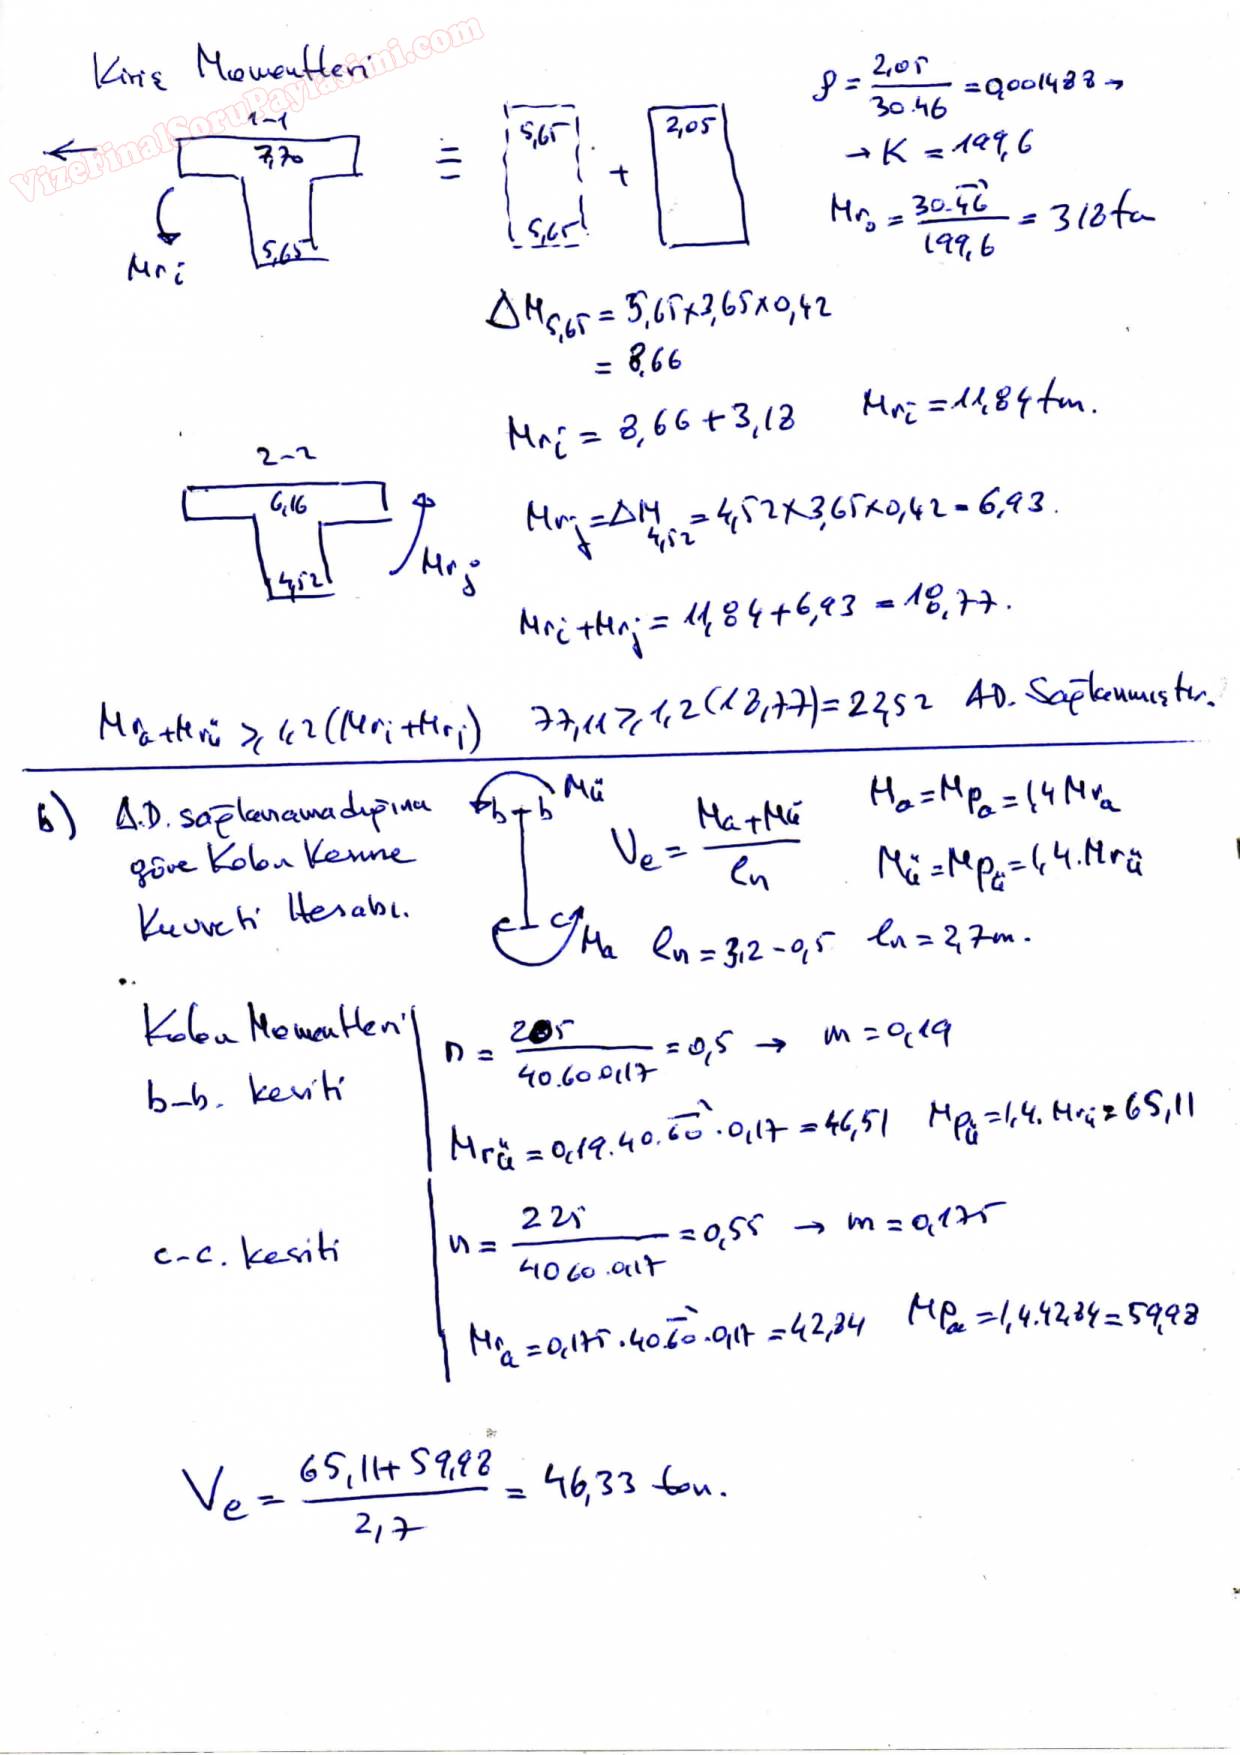 VizeFinalSoruPaylasimi.com
Kiriş Momentleri
1-1
7,70
5,65
Mri
≡
5,65
5,65
+
2,05
ρ = 2,05 / 30.46 = 0,001488 →
→ K = 199,6
Mr₀ = 30.46² / 199,6 = 318 tn
ΔM5,65 = 5,65x3,65x0,42
= 8,66
Mri = 8,66 + 3,18 Mri = 11,84 tm.
2-2
6,16
4,52
Mrj
Mrj = ΔM4,52 = 4,52x3,65x0,42 = 6,93.
Mri + Mrj = 11,84 + 6,93 = 18,77.
Mra + Mrü ≥ 1,2(Mri + Mrj) 77,11 ≥ 1,2(18,77) = 22,52 A.D. Sağlanmıştır.
b) A.D. sağlanamadığına
göre Kolon Kesme
Kuvveti Hesabı.
b-b
Mü
c-c
Ma
Ve = Ma + Mü / ln
Ma = Mpa = 1,4 Mra
Mü = Mpü = 1,4. Mrü
ln = 3,2 - 0,5 ln = 2,7m.
Kolon Momentleri
b-b. kesiti
n = 205 / 40.60.0,17 = 0,5 → m = 0,19
Mrü = 0,19.40.60².0,17 = 46,51 Mpü = 1,4. Mrü = 65,11
c-c. kesiti
n = 225 / 40 60.0,17 = 0,55 → m = 0,175
Mra = 0,175.40.60².0,17 = 42,84 Mpa = 1,4.42,84 = 59,98
Ve = 65,11 + 59,98 / 2,7 = 46,33 ton.